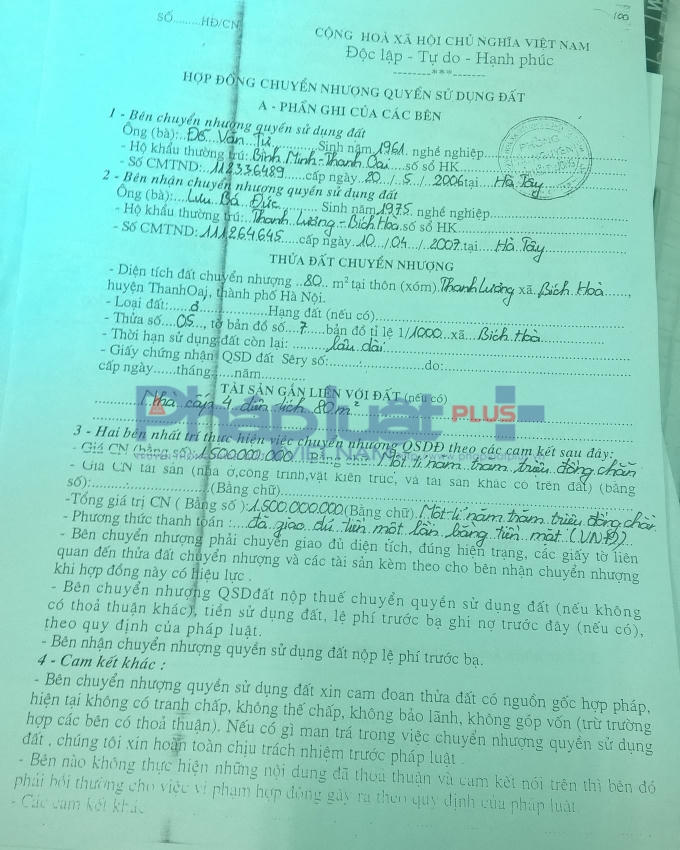 100
SỐ.........HĐ/CN
CỘNG HOÀ XÃ HỘI CHỦ NGHĨA VIỆT NAM
Độc lập - Tự do - Hạnh phúc
--------***-------
HỢP ĐỒNG CHUYỂN NHƯỢNG QUYỀN SỬ DỤNG ĐẤT
A - PHẦN GHI CỦA CÁC BÊN
1 - Bên chuyển nhượng quyền sử dụng đất
Ông (bà):..Đỗ Văn Tử.........Sinh năm 1961. nghề nghiệp.........
- Hộ khẩu thường trú: Bình Minh - Thanh Oai.....số sổ HK.........
- Số CMTND: 112336489......cấp ngày 20../..5../..2006 tại....Hà Tây
2 - Bên nhận chuyển nhượng quyền sử dụng đất
Ông (bà):...Lưu Bá Đức.........Sinh năm 1975. nghề nghiệp.........
- Hộ khẩu thường trú: Thanh Lương - Bích Hoà số sổ HK.........
- Số CMTND: 111264645.....cấp ngày 10../04../..2007.tại....Hà Tây
THỬA ĐẤT CHUYỂN NHƯỢNG
- Diện tích đất chuyển nhượng ..80.. m² tại thôn (xóm) Thanh Lương xã. Bích Hoà.....,
huyện ThanhOai, thành phố Hà Nội.
- Loại đất:.........Hạng đất (nếu có).........
- Thửa số....05..., tờ bản đồ số...7.....bản đồ tỉ lệ 1/1000...xã....Bích Hoà
- Thời hạn sử dụng đất còn lại: .........lâu dài.........
- Giấy chứng nhận QSD đất Sêry số:.........do:.........
cấp ngày.....tháng......năm.........
TÀI SẢN GẮN LIỀN VỚI ĐẤT (nếu có)
Nhà cấp 4 diện tích 80m²
Phapluat PLUS
3 - Hai bên nhất trí thực hiện việc chuyển nhượng QSDĐ theo các cam kết sau đây:
- Giá CN (bằng số) 1.500.000.000 (Bằng chữ) Một tỉ năm trăm triệu đồng chẵn
- Giá CN tài sản (nhà ở,công trình,vật kiến trúc, và tài sản khác có trên đất) (bằng
số):.........(Bằng chữ).........
-Tổng giá trị CN ( Bằng số ):1.500.000.000(Bằng chữ). Một tỉ năm trăm triệu đồng chẵn
- Phương thức thanh toán :....đã giao đủ tiền một lần bằng tiền mặt (VNĐ)
- Bên chuyển nhượng phải chuyển giao đủ diện tích, đúng hiện trạng, các giấy tờ liên
quan đến thửa đất chuyển nhượng và các tài sản kèm theo cho bên nhận chuyển nhượng
khi hợp đồng này có hiệu lực .
- Bên chuyển nhượng QSDđất nộp thuế chuyển quyền sử dụng đất (nếu không
có thoả thuận khác), tiền sử dụng đất, lệ phí trước bạ ghi nợ trước đây (nếu có),
theo quy định của pháp luật.
- Bên nhận chuyển nhượng quyền sử dụng đất nộp lệ phí trước bạ.
4 - Cam kết khác :
- Bên chuyển nhượng quyền sử dụng đất xin cam đoan thửa đất có nguồn gốc hợp pháp,
hiện tại không có tranh chấp, không thế chấp, không bảo lãnh, không góp vốn (trừ trường
hợp các bên có thoả thuận). Nếu có gì man trá trong việc chuyển nhượng quyền sử dụng
đất , chúng tôi xin hoàn toàn chịu trách nhiệm trước pháp luật .
- Bên nào không thực hiện những nội dung đã thoả thuận và cam kết nói trên thì bên đó
phải bồi thường cho việc vi phạm hợp đồng gây ra theo quy định của pháp luật.
- Các cam kết khác